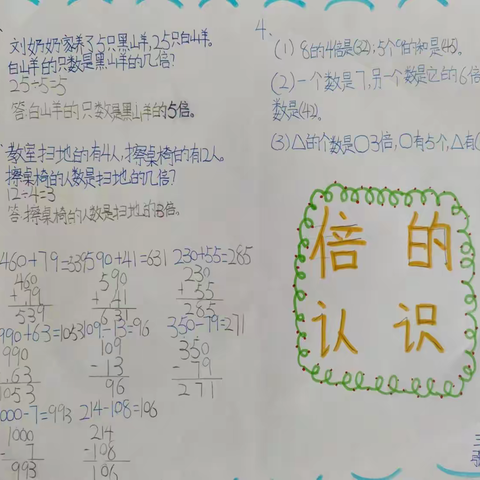 刘奶奶家养了5只黑山羊,25只白山羊。
白山羊的只数是黑山羊的几倍?
25÷5=5
答:白山羊的只数是黑山羊的5倍。
教室扫地的有4人,擦桌椅的有12人。
擦桌椅的人数是扫地的几倍?
12÷4=3
答:擦桌椅的人数是扫地的3倍。
460+79=539 590+41=631 230+55=285
460 590 230
+ 79 + 41 + 55
539 631 285
990+63=1053 109-13=96 350-79=271
990 109 350
+ 63 - 13 - 79
1053 96 271
1000-7=993 214-108=106
1000 214
- 7 -108
993 106
4、
(1) 8的4倍是(32);5个9的和是(45)。
(2)一个数是7,另一个数是它的6倍
数是(42)。
(3)△的个数是○3倍,○有5个,△有(
倍的
认识